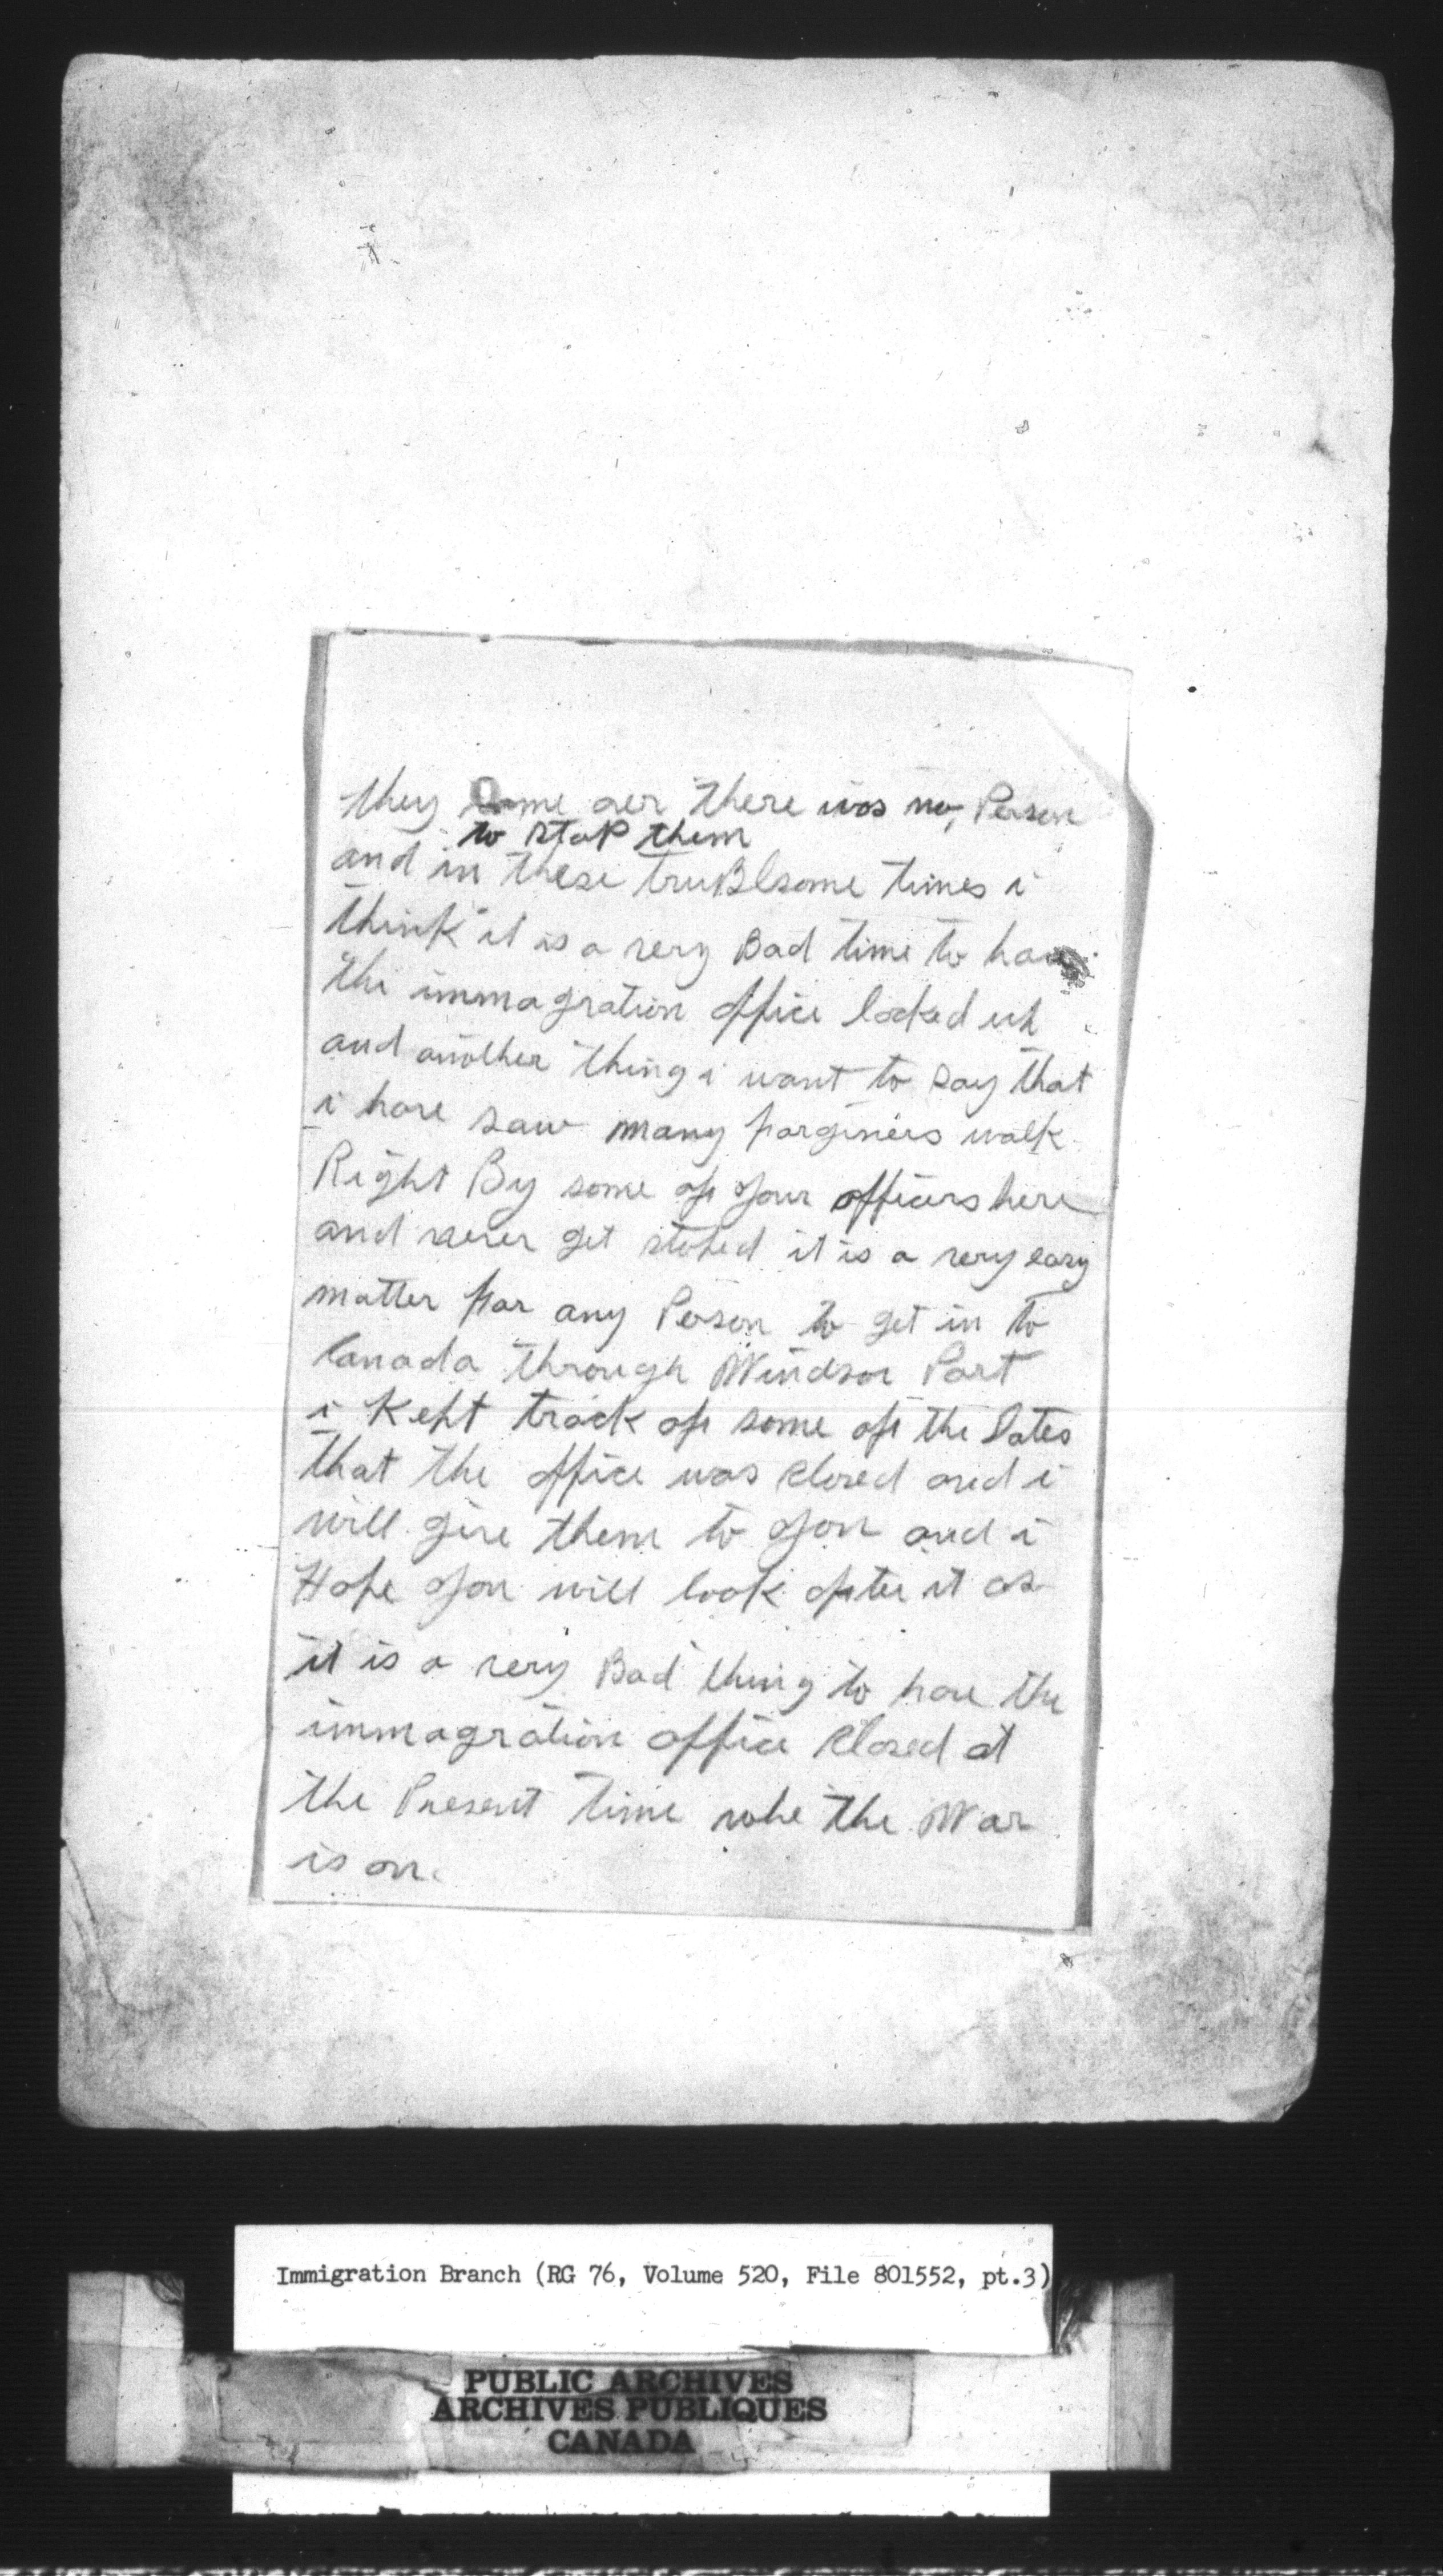 they Come over there was no, Person
to stop them
and in these truBlsome times i
think it is a very Bad time to have
the immagration office locked up
and another thing i want to say that
i have saw many forginers walk
Right By some of your officers here
and never get stoped it is a very easy
matter for any Person to get in to
Canada through Windsor Port
i Kept track of some of the Dates
that the office was Closed and i
will give them to you and i
Hope you will look after it as
it is a very Bad thing to have the
immagration office Closed at
the Present time whe the War
is on.
Immigration Branch (RG 76, Volume 520, File 801552, pt.3)
PUBLIC ARCHIVES
ARCHIVES PUBLIQUES
CANADA